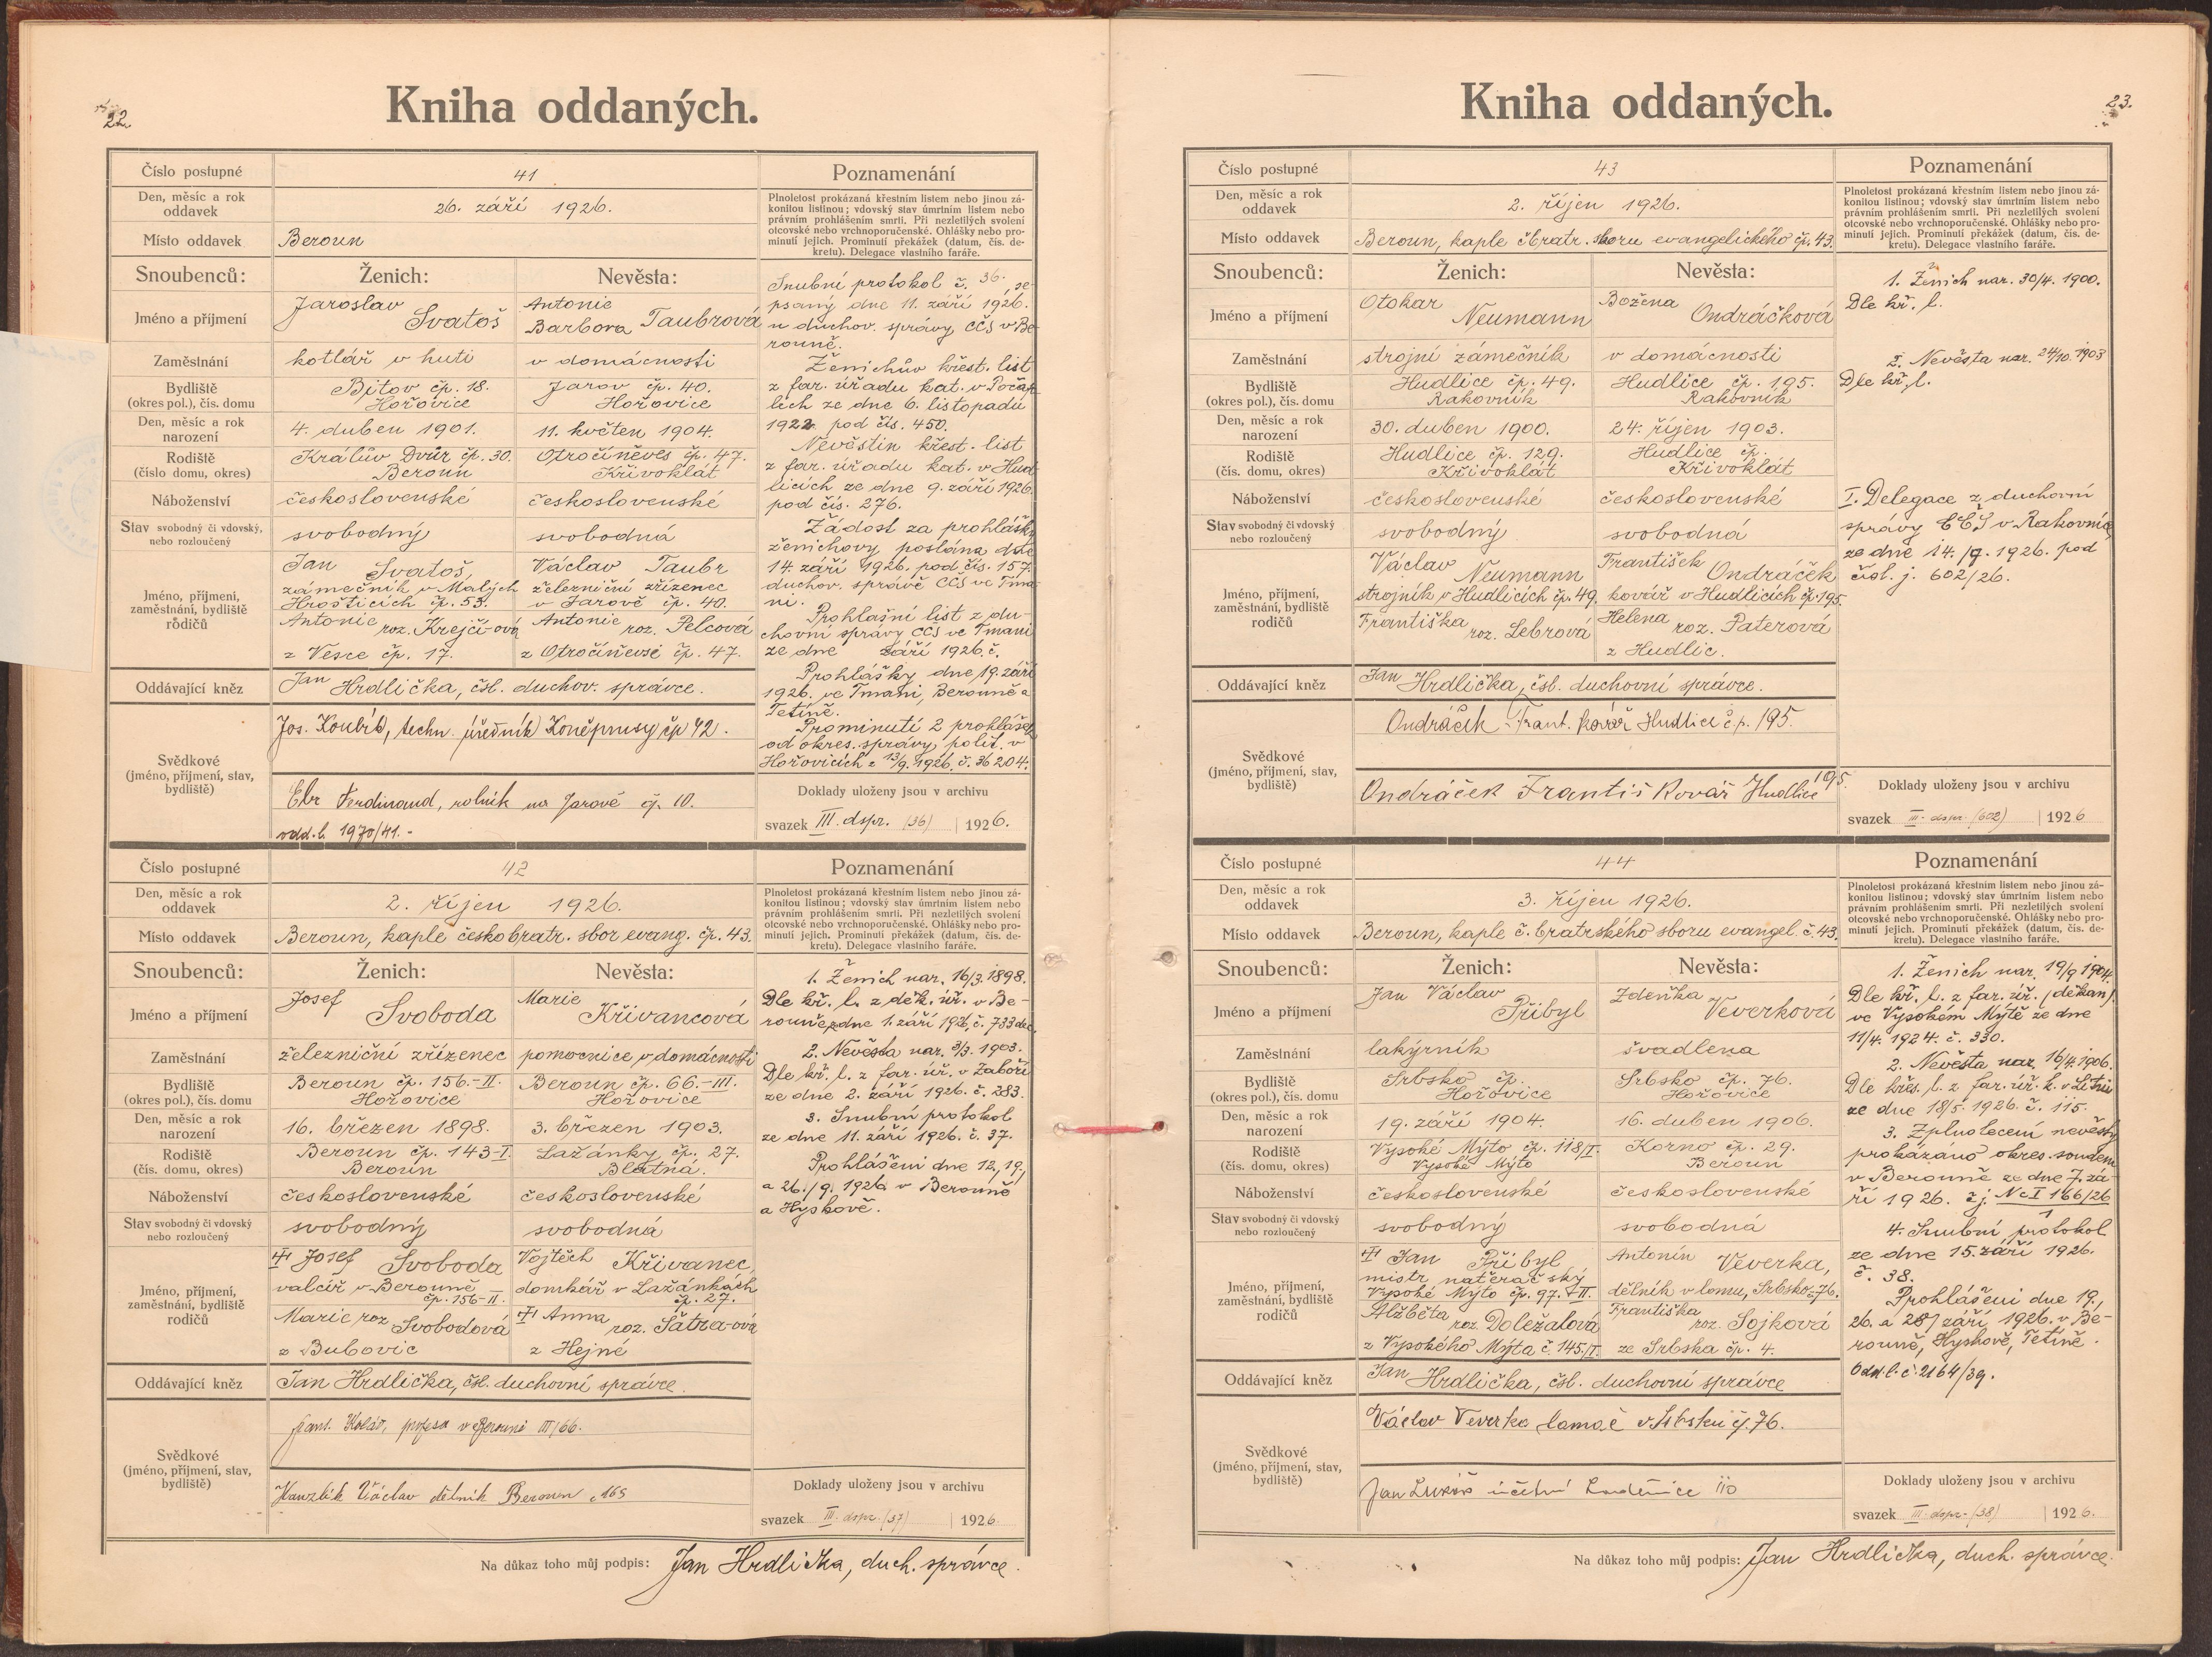 22.
Kniha oddaných.
Číslo postupné
41
Den, měsíc a rok
oddavek
26. září 1926.
Místo oddavek
Beroun
Poznamenání
Plnoletost prokázaná křestním listem nebo jinou zá-
konitou listinou; vdovský stav úmrtním listem nebo
právním prohlášením smrti. Při nezletilých svolení
otcovské nebo vrchnoporučenské. Ohlášky nebo pro-
minutí jejich. Prominutí překážek (datum, čís. de-
kretu). Delegace vlastního faráře.
Snoubenců: Ženich: Nevěsta:
Jméno a příjmení
Jaroslav Svatoš
Antonie
Barbora Taubrová
Zaměstnání
kotlář v huti
v domácnosti
Bydliště
(okres pol.), čís. domu
Bítov čp. 18.
Hořovice
Jarov čp. 40.
Hořovice
Den, měsíc a rok
narození
4. duben 1901.
11. květen 1904.
Rodiště
(číslo domu, okres)
Králův Dvůr čp. 30.
Beroun
Otročiněves čp. 47.
Křivoklát
Náboženství
československé
československé
Stav svobodný či vdovský,
nebo rozloučený
svobodný
svobodná
Jméno, příjmení,
zaměstnání, bydliště
rodičů
Jan Svatoš,
zámečník v Malých
Hrošticích čp. 53.
Antonie roz. Krejčí-ová
z Vesce čp. 17.
Václav Taubr
železniční zřízenec
v Jarově čp. 40.
Antonie roz. Pelcová
z Otročiněvsi čp. 47.
Oddávající kněz
Jan Hrdlička, čsl. duchov. správce.
Svědkové
(jméno, příjmení, stav,
bydliště)
Jos. Koubík, techn. úředník Koněprusy čp 42.
Ebr Ferdinand, rolník na Jarově čp. 10.
odd. l. 1970/41.-
Snubní protokol č. 36. se-
psaný dne 11. září 1926.
u duchov. správy CČS v Be-
rouně.
Ženichův křest. list
z far. úřadu kat. v Počap-
lích ze dne 6. listopadu
1922 pod čís. 450.
Nevěstin křest. list
z far. úřadu kat. v Hud-
licích ze dne 9. září 1926
pod čís. 276.
Žádost za prohlášky
ženichovy poslána dne
14. září 1926. pod čís. 157.
duchov. správě CČS ve Tma-
ni.
Prohlašní list z du-
chovní správy CČS ve Tmani
ze dne září 1926. č.
Prohlášky dne 19. září
1926. ve Tmani, Berouně a
Tetíně.
Prominutí 2 prohlášek
od okres. správy polit. v
Hořovicích z 13/9. 1926. č. 36204.
Doklady uloženy jsou v archivu
svazek III. dspr. (36) 1926.
Číslo postupné
42
Den, měsíc a rok
oddavek
2. říjen 1926.
Místo oddavek
Beroun, kaple českobratr. sbor evang. čp. 43.
Poznamenání
Plnoletost prokázaná křestním listem nebo jinou zá-
konitou listinou; vdovský stav úmrtním listem nebo
právním prohlášením smrti. Při nezletilých svolení
otcovské nebo vrchnoporučenské. Ohlášky nebo pro-
minutí jejich. Prominutí překážek (datum, čís. de-
kretu). Delegace vlastního faráře.
Snoubenců: Ženich: Nevěsta:
Jméno a příjmení
Josef Svoboda
Marie Křivancová
Zaměstnání
železniční zřízenec
pomocnice v domácnosti
Bydliště
(okres pol.), čís. domu
Beroun čp. 156-II.
Hořovice
Beroun čp. 66.-III.
Hořovice
Den, měsíc a rok
narození
16. březen 1898.
3. březen 1903.
Rodiště
(čís. domu, okres)
Beroun čp. 143-I.
Beroun
Lažánky čp. 27.
Blatná.
Náboženství
československé
československé
Stav svobodný či vdovský
nebo rozloučený
svobodný
svobodná
Jméno, příjmení,
zaměstnání, bydliště
rodičů
Josef Svoboda
valcíř v Berouně
čp. 156-II.
Marie roz Svobodová
z Bubovic
Vojtěch Křivanec,
domkář v Lažánkách
čp. 27.
Anna roz. Šatra-ová
z Hejné
Oddávající kněz
Jan Hrdlička, čsl. duchovní správce.
Svědkové
(jméno, příjmení, stav,
bydliště)
Frant. Kolář, v Berouně III/66.
Václav dělník Beroun č 165
1. Ženich nar. 16/3. 1898.
Dle kř. l. z děk. úř. v Be-
rouně ze dne 1. září 1926, č. 733 dec.
2. Nevěsta nar. 3/3. 1903.
Dle kř. l. z far. úř. v Záboří
ze dne 2. září 1926. č. 283.
3. Snubní protokol
ze dne 11. září 1926. č. 37.
Prohlášeni dne 12, 19,
a 26./9. 1926 v Berouně
a Hyskově.
Doklady uloženy jsou v archivu
svazek III. dspr. (37) 1926.
Na důkaz toho můj podpis: Jan Hrdlička, duch. správce.
23.
Kniha oddaných.
Číslo postupné
43
Den, měsíc a rok
oddavek
2. říjen 1926.
Místo oddavek
Beroun, kaple čbratr. sboru evangelického čp. 43.
Poznamenání
Plnoletost prokázaná křestním listem nebo jinou zá-
konitou listinou; vdovský stav úmrtním listem nebo
právním prohlášením smrti. Při nezletilých svolení
otcovské nebo vrchnoporučenské. Ohlášky nebo pro-
minutí jejich. Prominutí překážek (datum, čís. de-
kretu). Delegace vlastního faráře.
Snoubenců: Ženich: Nevěsta:
Jméno a příjmení
Otokar Neumann
Božena Ondráčková
Zaměstnání
strojní zámečník
v domácnosti
Bydliště
(okres pol.), čís. domu
Hudlice čp. 49.
Rakovník
Hudlice čp. 195.
Rakovník
Den, měsíc a rok
narození
30. duben 1900.
24. říjen 1903.
Rodiště
(čís. domu, okres)
Hudlice čp. 129.
Křivoklát
Hudlice čp.
Křivoklát
Náboženství
československé
československé
Stav svobodný či vdovský
nebo rozloučený
svobodný
svobodná
Jméno, příjmení,
zaměstnání, bydliště
rodičů
Václav Neumann
strojník v Hudlicích čp. 49.
Františka roz. Lebrová
František Ondráček
kovář v Hudlicích čp. 195.
Helena roz. Paterová
z Hudlic.
Oddávající kněz
Jan Hrdlička, čsl. duchovní správce.
Svědkové
(jméno, příjmení, stav,
bydliště)
Ondráček Frant. kovář Hudlice č.p. 195.
Ondráček Františ Kovář Hudlice 195.
1. Ženich nar. 30/4. 1900.
Dle kř. l.
2. Nevěsta nar. 24/10. 1903
Dle kř. l.
I. Delegace z duchovní
správy CČS v Rakovníce
ze dne 14./9. 1926. pod
čsl. j. 602/26.
Doklady uloženy jsou v archivu
svazek III. dspr. (602) 1926
Číslo postupné
44
Den, měsíc a rok
oddavek
3. říjen 1926.
Místo oddavek
Beroun, kaple č. bratrského sboru evangel. č. 43.
Poznamenání
Plnoletost prokázaná křestním listem nebo jinou zá-
konitou listinou; vdovský stav úmrtním listem nebo
právním prohlášením smrti. Při nezletilých svolení
otcovské nebo vrchnoporučenské. Ohlášky nebo pro-
minutí jejich. Prominutí překážek (datum, čís. de-
kretu). Delegace vlastního faráře.
Snoubenců: Ženich: Nevěsta:
Jméno a příjmení
Jan Václav Přibyl
Zdeňka Veverková
Zaměstnání
lakýrník
švadlena
Bydliště
(okres pol.), čís. domu
Srbsko čp.
Hořovice
Srbsko čp. 76.
Hořovice
Den, měsíc a rok
narození
19. září 1904.
16. duben 1906.
Rodiště
(čís. domu, okres)
Vysoké Mýto čp. 118/I.
Vysoké Mýto
Korno čp. 29.
Beroun
Náboženství
československé
československé
Stav svobodný či vdovský
nebo rozloučený
svobodný
svobodná
Jméno, příjmení,
zaměstnání, bydliště
rodičů
Jan Přibyl
mistr natěračský
Vysoké Mýto čp. 97.
Alžběta roz. Doležalová
z Vysokého Mýta č. 145/I.
Antonín Veverka,
dělník v lomu, Srbsko 76.
Františka roz. Sojková
ze Srbska čp. 4.
Oddávající kněz
Jan Hrdlička, čsl. duchovní správce
Svědkové
(jméno, příjmení, stav,
bydliště)
Václav Veverka lamač v Srbsku čp. 76.
Jan Lukáš účetní Loděnice 110
1. Ženich nar. 19/9 1904.
Dle kř. l. z far. úř. (děkan)
ve Vysokém Mýtě ze dne
11/4. 1924. č. 330.
2. Nevěsta nar. 16/4. 1906.
Dle křes. l. z far. úř. k. v Litni
ze dne 18/5. 1926. č. 115.
3. Zplnoletení nevěsty
prokázáno okres. soudem
v Berouně ze dne 7. zá-
ří 1926. čj. Nc I 166/26
4. Snubní protokol
ze dne 15. září 1926.
č. 38.
Prohlášeni dne 19.,
26. a 28/ září 1926. v Be-
rouně, Hyskově, Tetíně.
Odd. l. č. 2164/39.
Doklady uloženy jsou v archivu
svazek III. dspr. (38) 1926.
Na důkaz toho můj podpis: Jan Hrdlička, duch. správce.